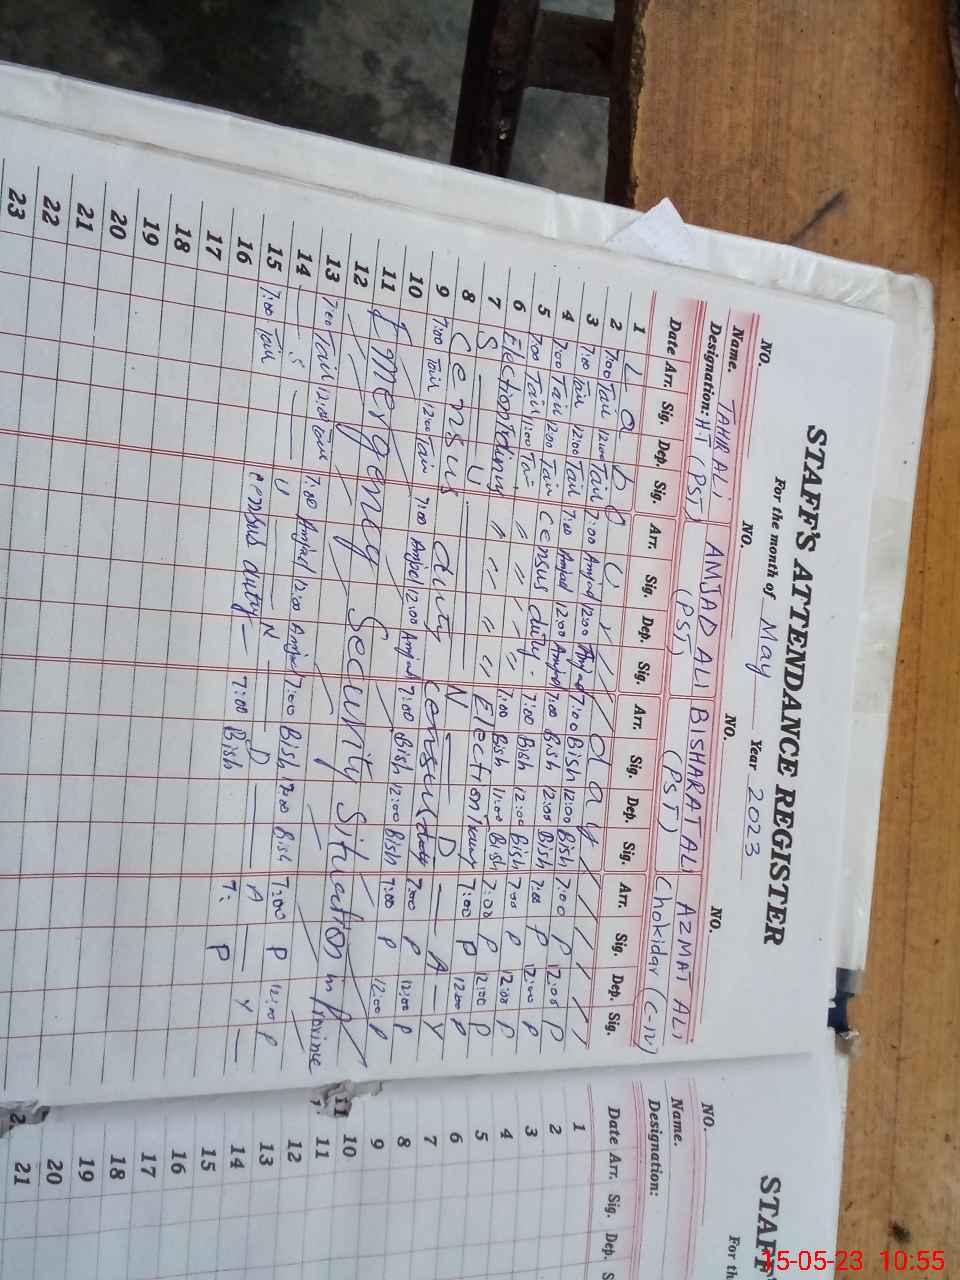 STAFF'S ATTENDANCE REGISTER
For the month of May Year 2023
NO. NO. NO. NO.
Name. TAHIR ALi AMJAD ALI BISHARAT ALI AZMAT ALI
Designation: HT (PST) (PST) (PST) Chokidar (C-IV)
Date Arr. Sig. Dep. Sig. Arr. Sig. Dep. Sig. Arr. Sig. Dep. Sig. Arr. Sig. Dep. Sig.
1 L a b o u r d a y
2 7:00 Tail 12:00 Tail 7:00 Amjad 12:00 Amjad 7:00 Bish 12:00 Bish 7:00 P 12:00 P
3 7:00 Tail 12:00 Tail 7:00 Amjad 12:00 Amjad 7:00 Bish 12:00 Bish 7:00 P 12:00 P
4 7:00 Tail 12:00 Tail Census duty - 7:00 Bish 12:00 Bish 7:00 P 12:00 P
5 7:00 Tail 11:00 〃 〃 〃 〃 7:00 Bish 11:00 Bish 7:00 P 12:00 P
6 Election 〃 〃 〃 〃 Election 7:00 P 12:00 P
7 S — U — N — D — A — Y
8 Census duty Census duty 7:00 P 12:00 P
9 7:00 Tail 12:00 Tail 7:00 Amjad 12:00 Amjad 7:00 Bish 12:00 Bish 7:00 P 12:00 P
10
11 Emergency Security Situation in Province
12
13 7:00 Tail 12:00 Tail 7:00 Amjad 12:00 Amjad 7:00 Bish 12:00 Bish 7:00 P 12:00 P
14 — S — U — N — D — A — Y —
15 7:00 Tail census duty — 7:00 Bish 7: P
16
17
18
19
20
21
22
23
STAFF
For th
NO.
Name.
Designation:
Date Arr. Sig. Dep. S
1
2
3
4
5
6
7
8
9
10
11
12
13
14
15
16
17
18
19
20
21
11
2
15-05-23 10:55